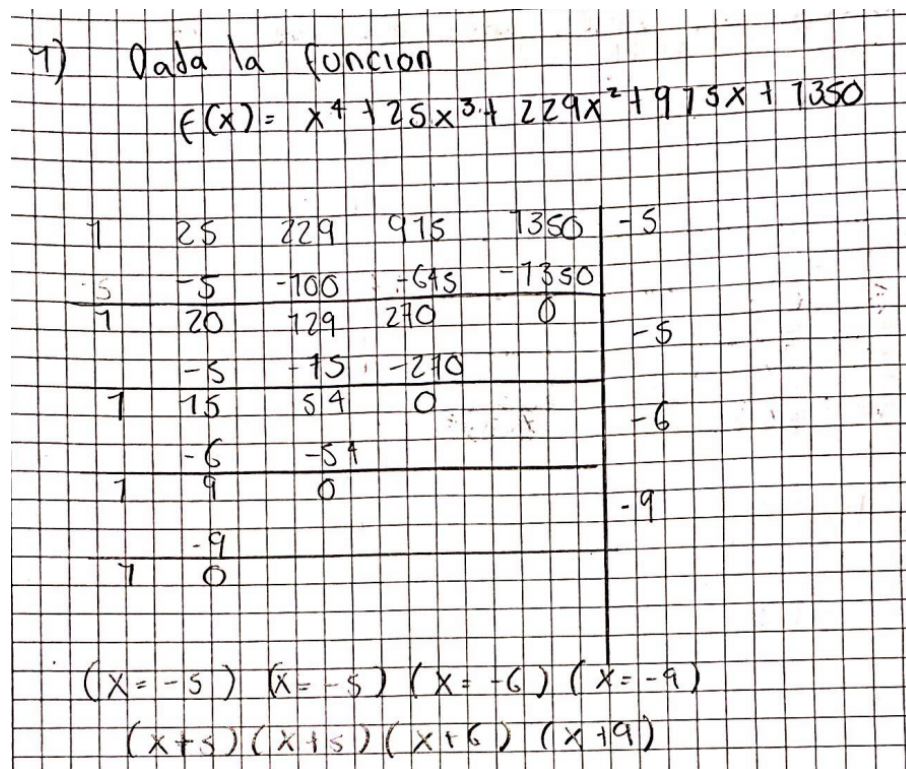 1) Dada la funcion
f(x) = x⁴ + 25x³ + 229x² + 915x + 1350
1 25 229 915 1350 -5
-5 -5 -100 -645 -1350
1 20 129 270 0
-5
-5 -75 -270
1 15 54 0
-6
-6 -54
1 9 0
-9
-9
1 0
(x = -5) (x = -5) (x = -6) (x = -9)
(x+5) (x+5) (x+6) (x+9)